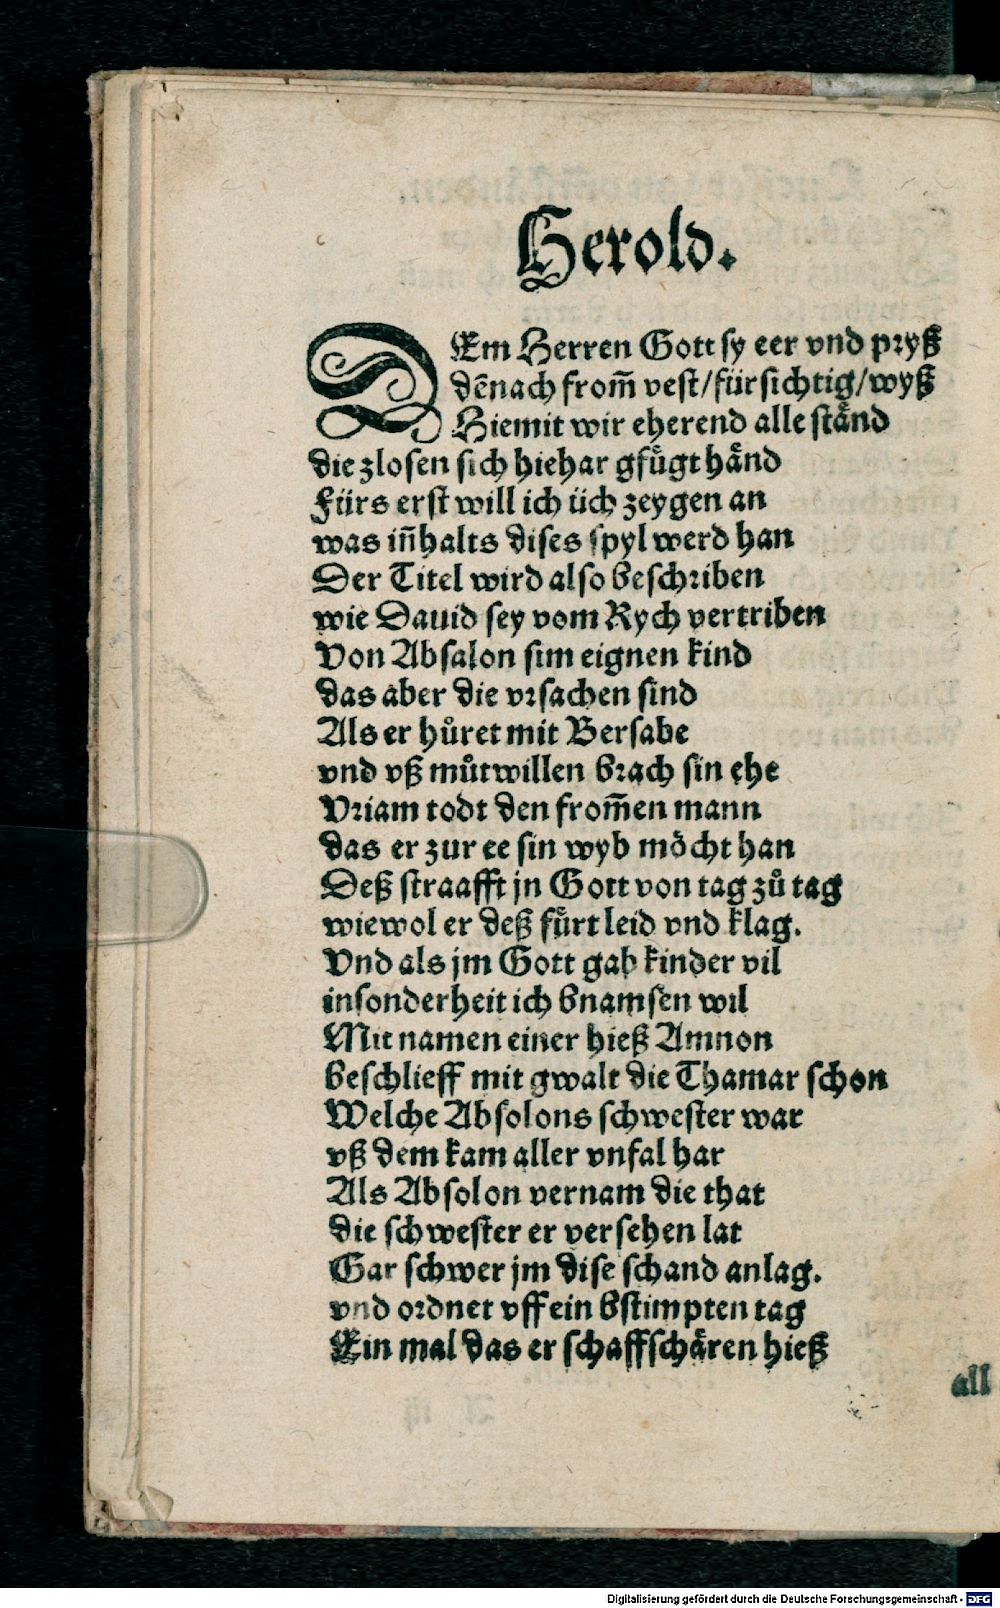 Herold.
DEm Herren Gott sy eer vnd pryß
dēnach from̄ vest/fürsichtig/wyß
Hiemit wir eherend alle stånd
die zlosen sich hiehar gfügt hånd
Fürs erst will ich üch zeygen an
was in̄halts dises spyl werd han
Der Titel wird also beschriben
wie Dauid sey vom Rych vertriben
Von Absalon sim eignen kind
das aber die vrsachen sind
Als er hůret mit Bersabe
vnd vß můtwillen brach sin ehe
Vriam todt den from̄en mann
das er zur ee sin wyb möcht han
Deß straafft jn Gott von tag zů tag
wiewol er deß fürt leid vnd klag.
Vnd als jm Gott gab kinder vil
insonderheit ich bnamsen wil
Mit namen einer hieß Amnon
beschlieff mit gwalt die Thamar schon
Welche Absolons schwester war
vß dem kam aller vnfal har
Als Absolon vernam die that
die schwester er versehen lat
Gar schwer jm dise schand anlag.
vnd ordnet vff ein bstimpten tag
Ein mal das er schaffschåren hieß
all
Digitalisierung gefördert durch die Deutsche Forschungsgemeinschaft - DFG